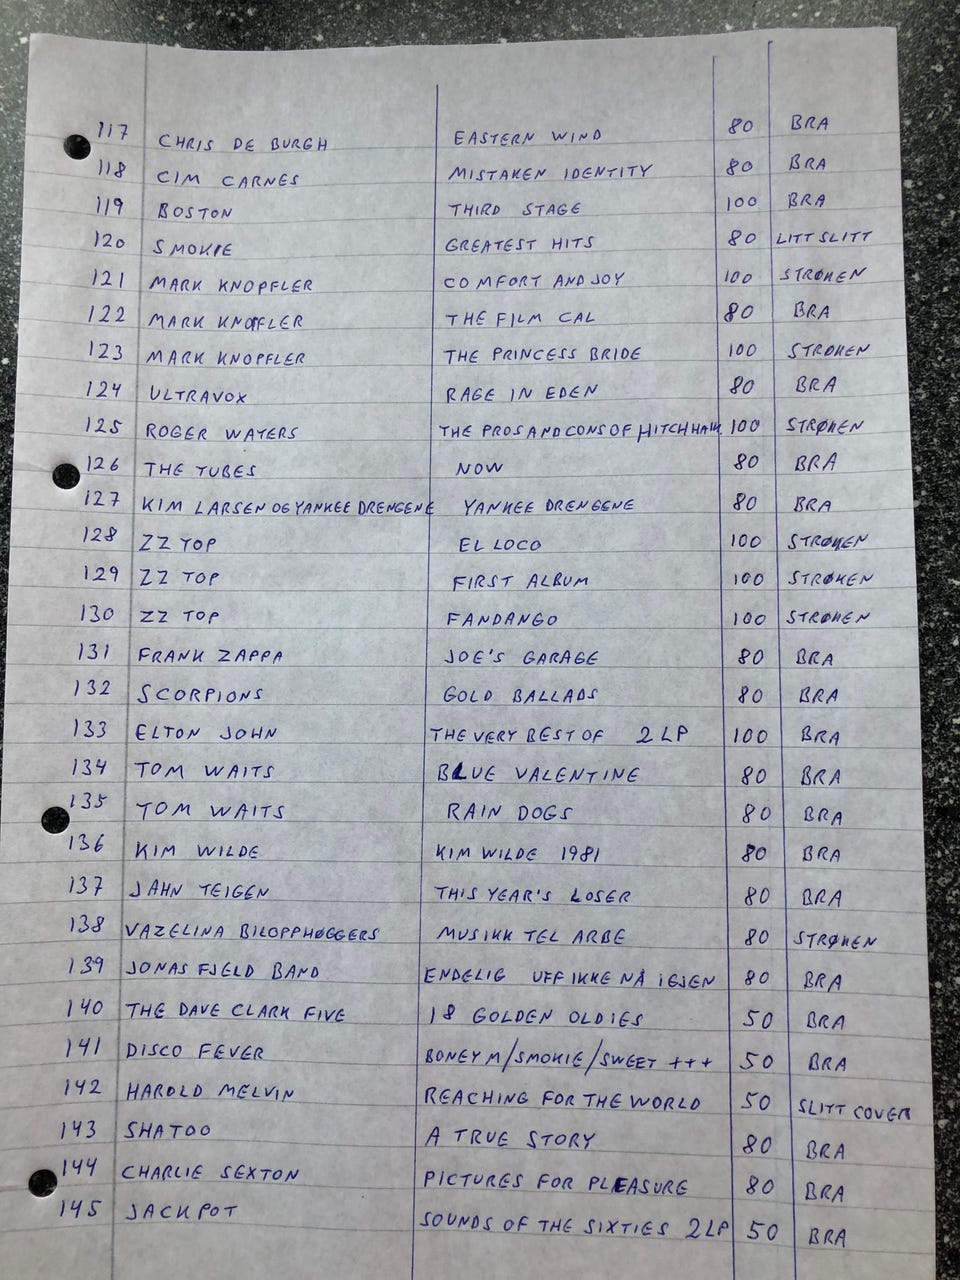 117 CHRIS DE BURGH EASTERN WIND 80 BRA
118 CIM CARNES MISTAKEN IDENTITY 80 BRA
119 BOSTON THIRD STAGE 100 BRA
120 SMOKIE GREATEST HITS 80 LITT SLITT
121 MARK KNOPFLER COMFORT AND JOY 100 STRØKEN
122 MARK KNOPFLER THE FILM CAL 80 BRA
123 MARK KNOPFLER THE PRINCESS BRIDE 100 STRØKEN
124 ULTRAVOX RAGE IN EDEN 80 BRA
125 ROGER WATERS THE PROS AND CONS OF HITCH HAIK. 100 STRØKEN
126 THE TUBES NOW 80 BRA
127 KIM LARSEN OG YANKEE DRENGENE YANKEE DRENGENE 80 BRA
128 ZZ TOP EL LOCO 100 STRØKEN
129 ZZ TOP FIRST ALBUM 100 STRØKEN
130 ZZ TOP FANDANGO 100 STRØKEN
131 FRANK ZAPPA JOE'S GARAGE 80 BRA
132 SCORPIONS GOLD BALLADS 80 BRA
133 ELTON JOHN THE VERY BEST OF 2 LP 100 BRA
134 TOM WAITS BLUE VALENTINE 80 BRA
135 TOM WAITS RAIN DOGS 80 BRA
136 KIM WILDE KIM WILDE 1981 80 BRA
137 JAHN TEIGEN THIS YEAR'S LOSER 80 BRA
138 VAZELINA BILOPPHØGGERS MUSIKK TEL ARBE 80 STRØKEN
139 JONAS FJELD BAND ENDELIG UFF IKKE NÅ IGJEN 80 BRA
140 THE DAVE CLARK FIVE 18 GOLDEN OLDIES 50 BRA
141 DISCO FEVER BONEY M/SMOKIE/SWEET +++ 50 BRA
142 HAROLD MELVIN REACHING FOR THE WORLD 50 SLITT COVER
143 SHATOO A TRUE STORY 80 BRA
144 CHARLIE SEXTON PICTURES FOR PLEASURE 80 BRA
145 JACKPOT SOUNDS OF THE SIXTIES 2LP 50 BRA